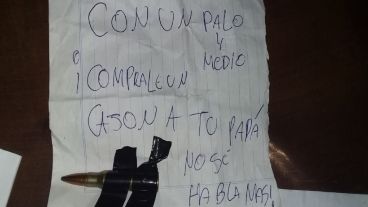 CON UN PALO
Y
MEDIO
COMPRALE UN
CAJON A TU PAPÁ
NO SÉ
HABLA MAS!